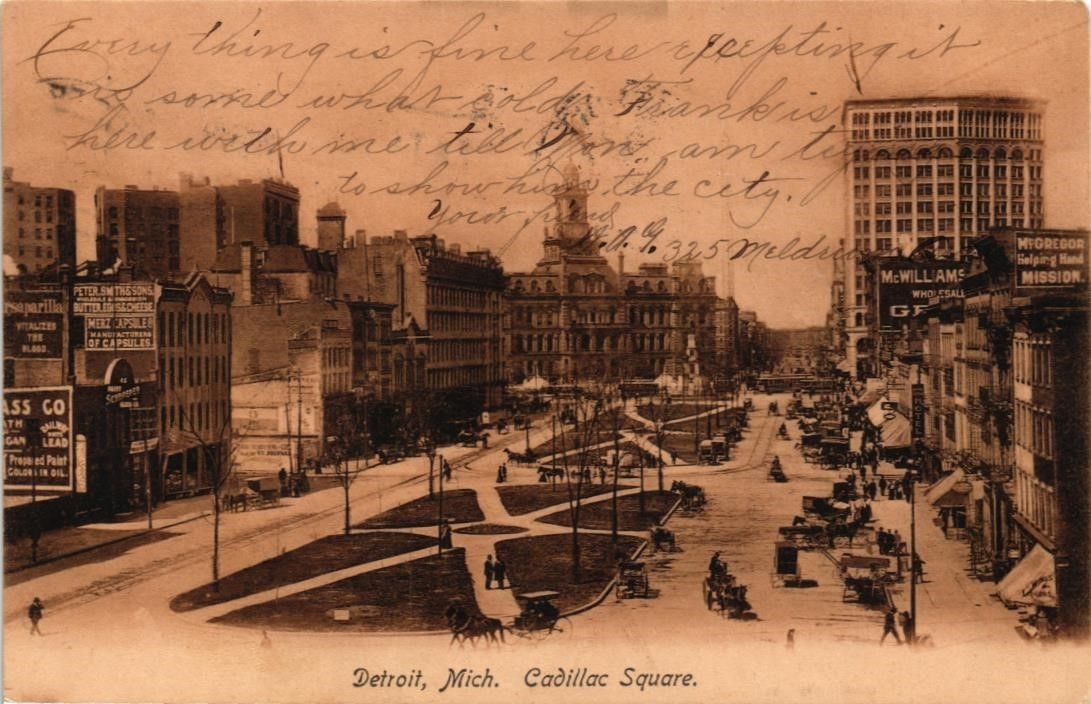 Every thing is fine here excepting it
is some what cold. Frank is
here with me till Mon. am
to show him the city.
Your friend
A. G. 325 Meldrum
McGREGOR
Helping Hand
MISSION
McWILLIAMS
WHOLESALE
PETER SMITH & SONS
BUTTER, EGGS & CHEESE
MERZ CAPSULE CO
MANUFACTURERS
OF CAPSULES
VITALIZES
THE
BLOOD
ASS CO
LEAD
Prepared Paint
COLOR IN OIL
HOTEL
Detroit, Mich. Cadillac Square.